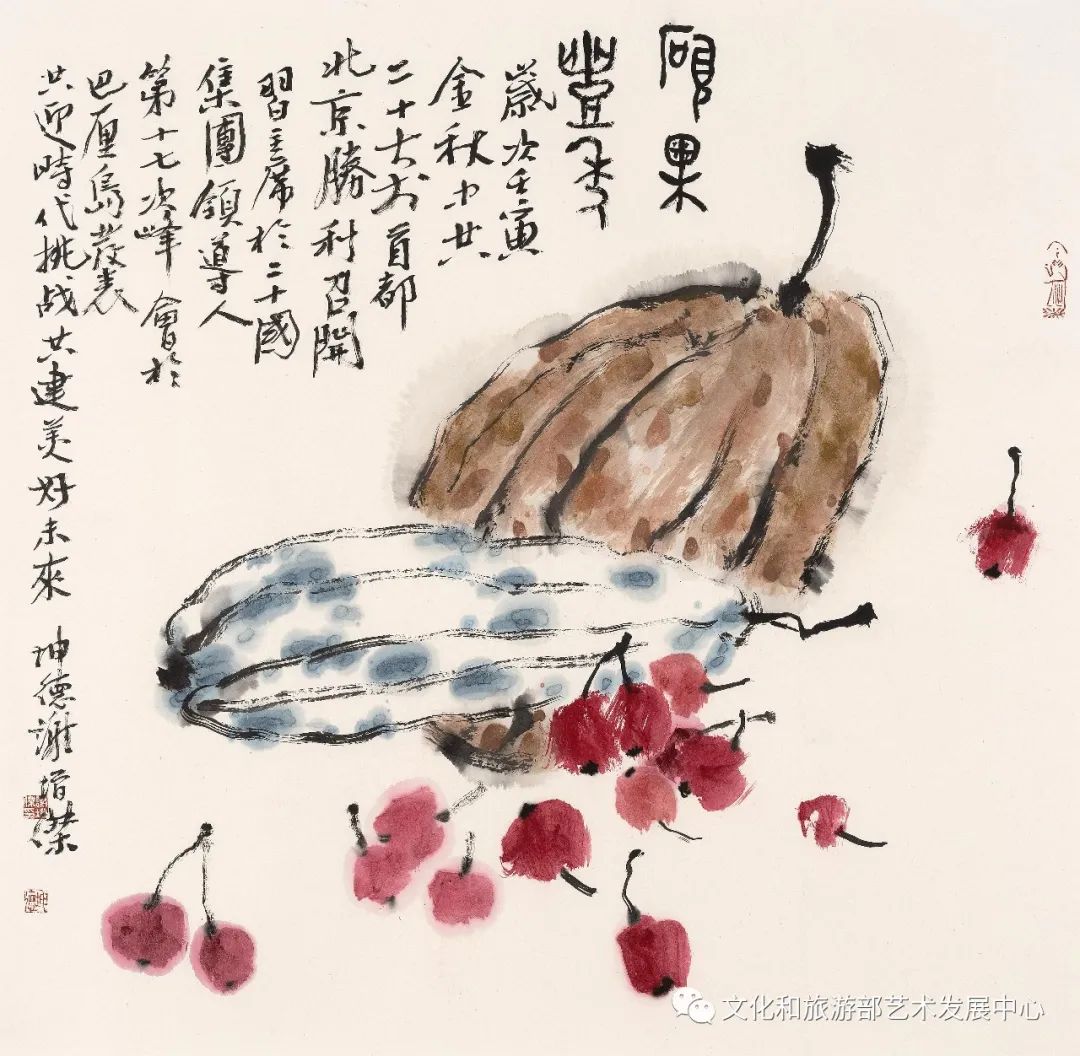 碩果
豐年
歲次壬寅
金秋中共
二十大於首都
北京勝利召開
習主席於二十國
集團領導人
第十七次峰會於
巴厘島發表
共迎時代挑战共建美好未來 坤德謝增傑
文化和旅游部艺术发展中心